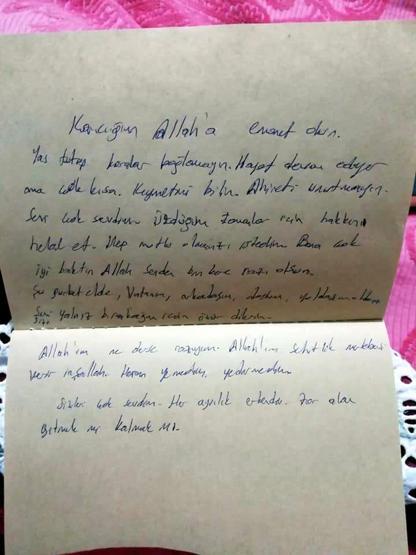 Karıcığım Allah'a emanet olun.
Yas tutup karalar bağlamayın. Hayat devam ediyor
ama çok kısa. Kıymetini bilin Ahireti unutmayın.
Seni çok sevdim. Üzdüğüm zamanlar için hakkını
helal et. Hep mutlu olmanızı istedim Bana çok
iyi baktın Allah senden bin kere razı olsun.
Şu gurbet elde, Vatanım, arkadaşım, dostum,
Seni yalnız bıraktığım için özür dilerim.
Allah'ım ne derse razıyım. Allah'ım şehitlik mertebesi
verir inşallah. Haram yemedim, yedirmedim.
Sizleri çok sevdim. Her ayrılık erkendir. Zor olan
gitmek mi kalmak mı.